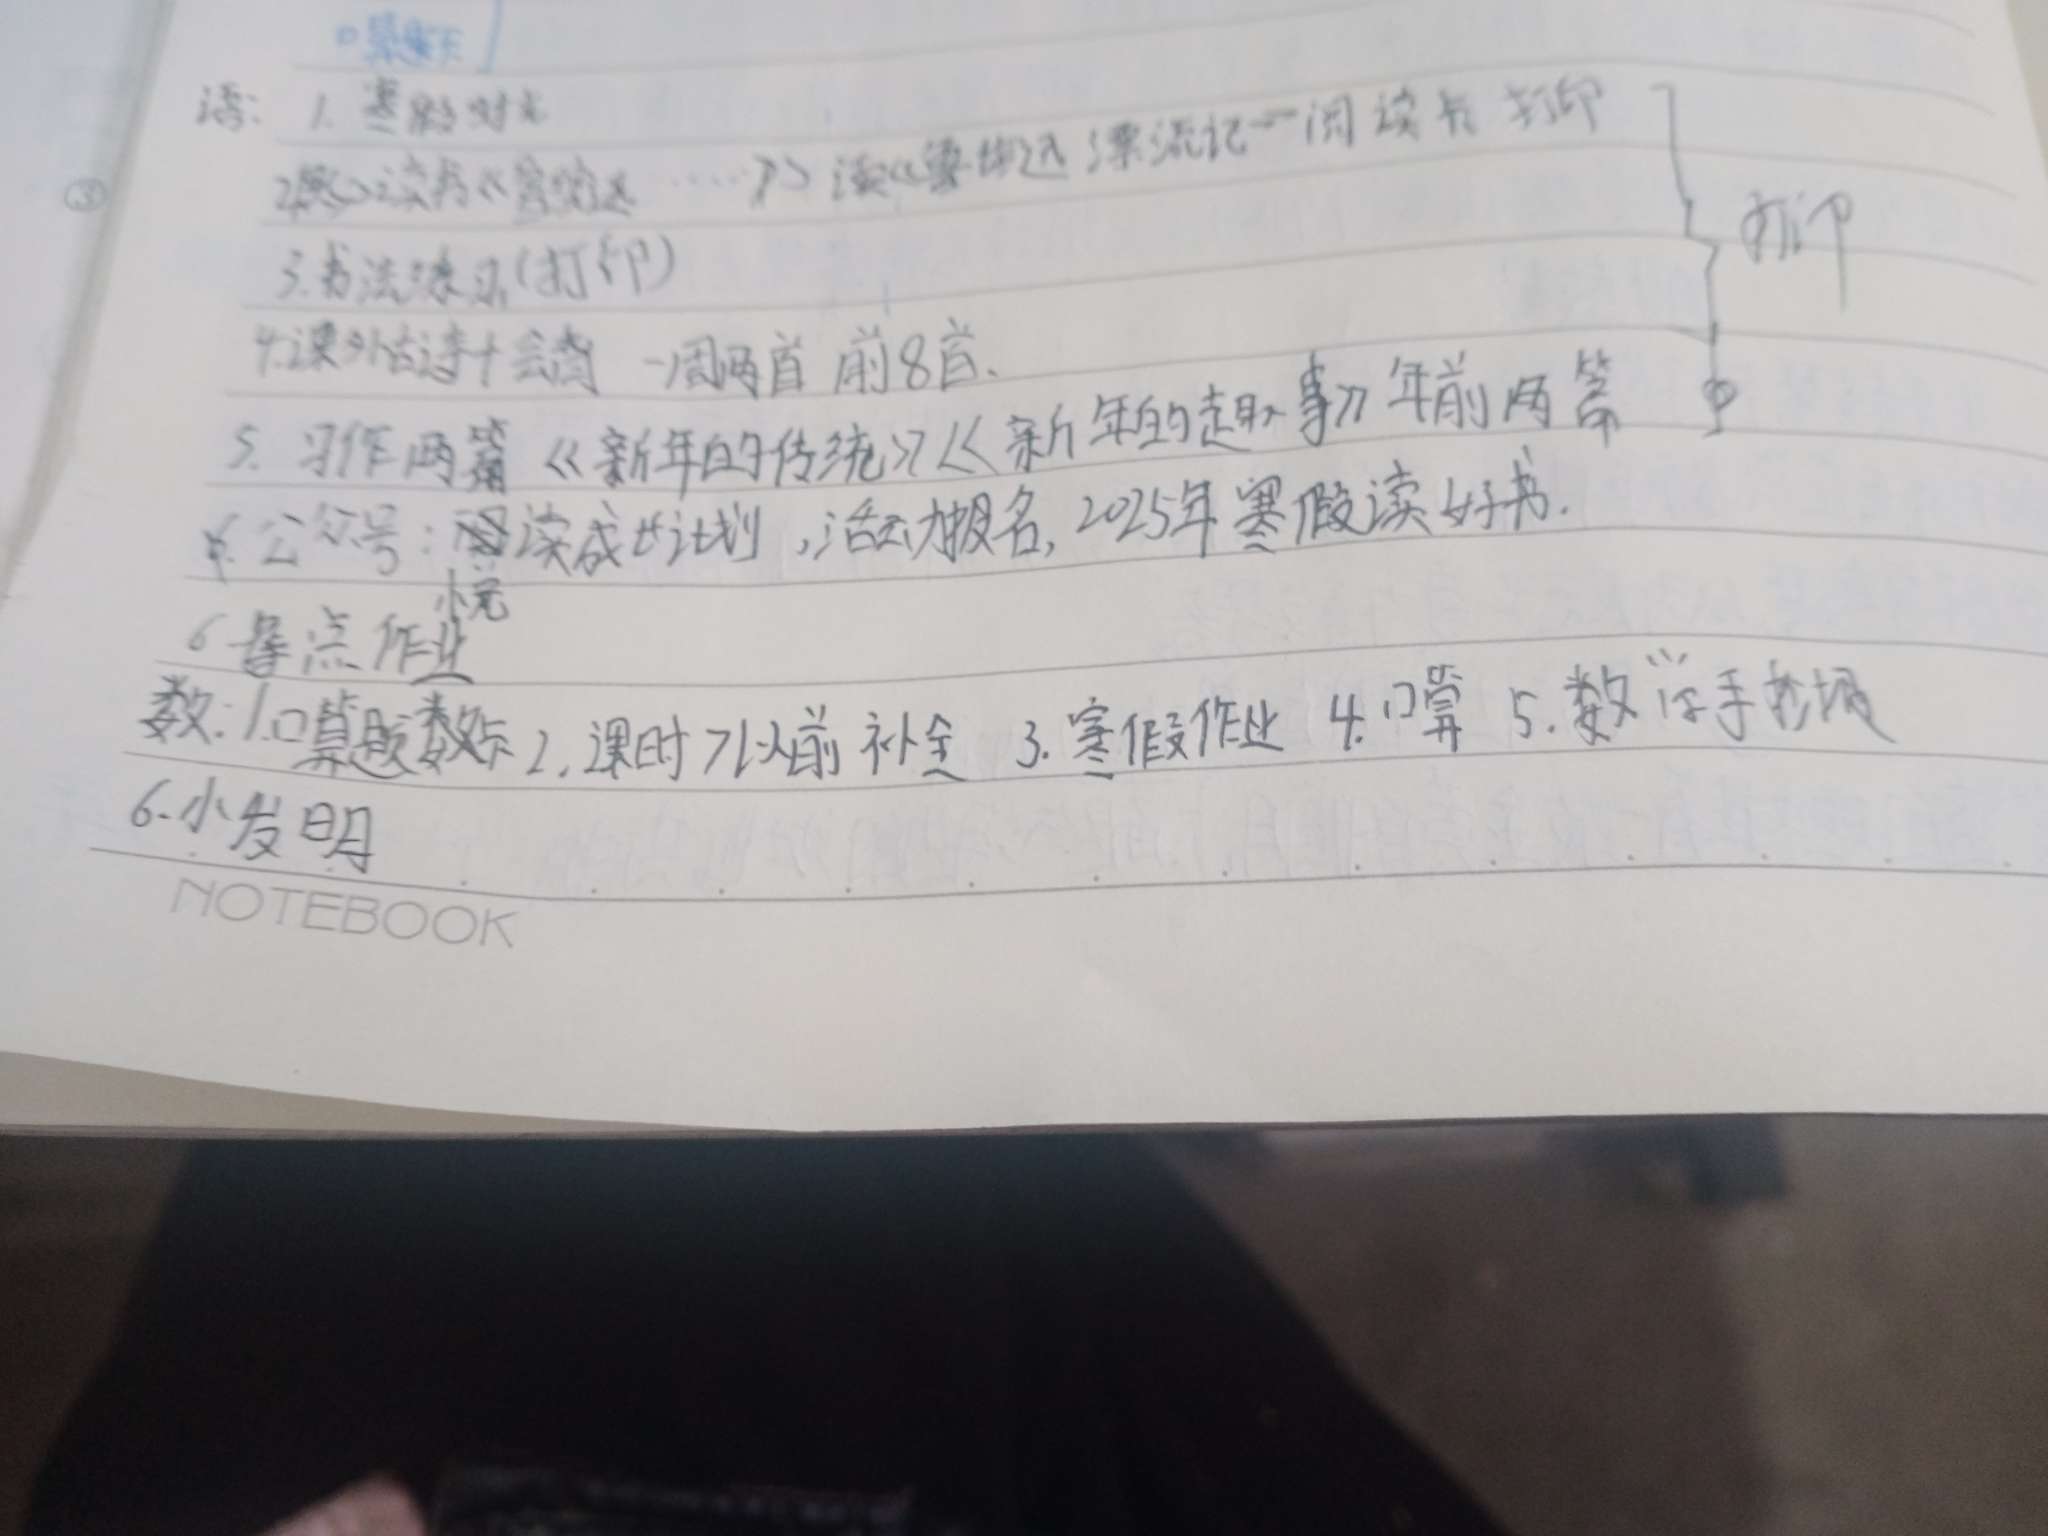 语: 1. 寒假时光
读书《鲁滨逊……》> 读《鲁宾逊漂流记 一 阅读卡 打印
打印
③
3.书法练习(打印)
4.课外古诗十会背 一周两首 前8首.
5. 习作两篇 《新年的传统》《新年的趣事》年前两篇
公众号: 读成长计划,活动报名,2025年寒假读好书.
小完
6 作业
数: 1.口算题 2.课时7以前补全 3.寒假作业 4.口算 5.数学手抄报
6.小发明
NOTEBOOK